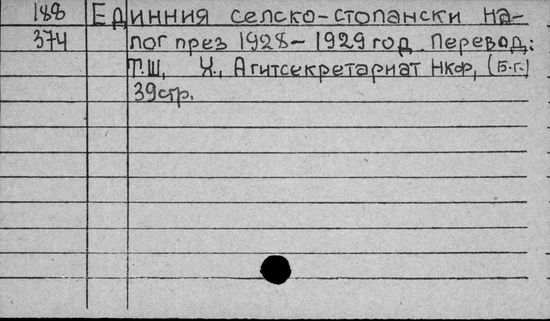 188 Единния селско-стопански на-
374 лог през 1928-1929 год. Перевод:
Т.Ш, Х., Агитсекретариат НКФ, (Б.г.)
39стр.